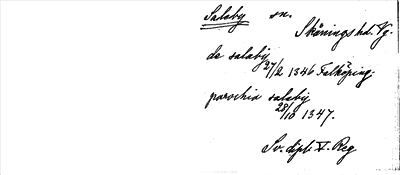 Salaby sn.
Skånings hd. Vg.
de salabij
27/2 1346 Falköping.
parochia salabij
28/10 1347.
Sv. dipl. V. Reg